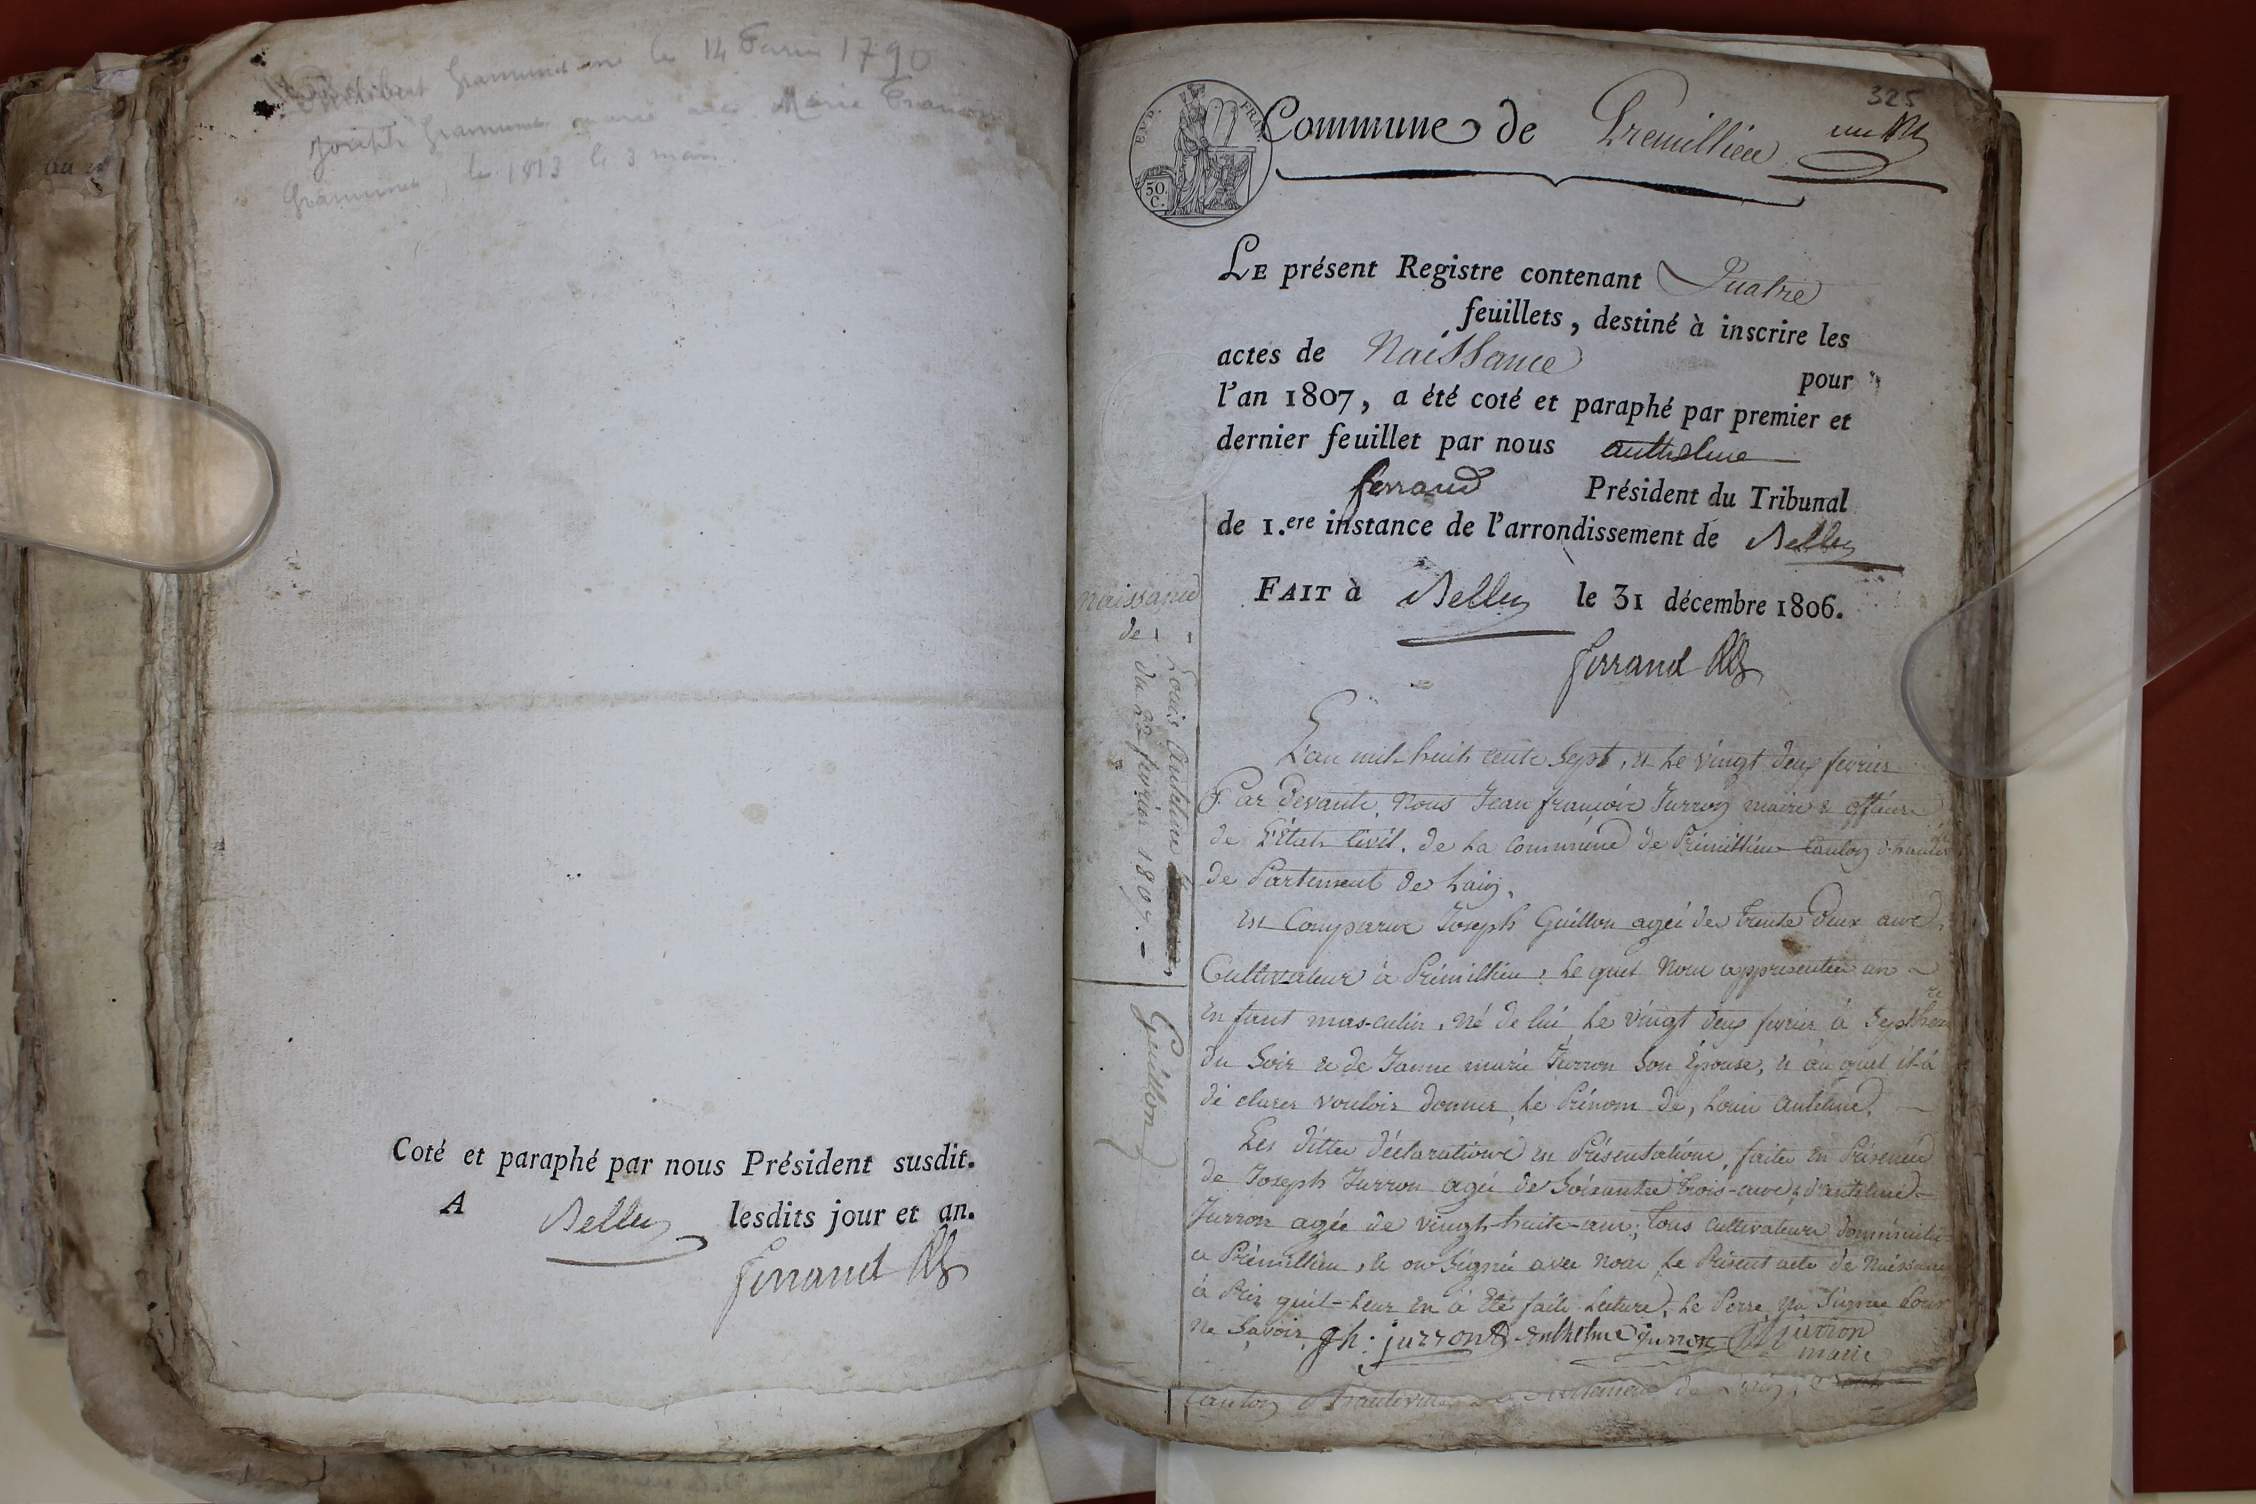 Philibert Grammont né le 14 1790
Joseph Grammont marié avec Marie
Grammont, le 1813 le 3 mars.
Coté et paraphé par nous Président susdit.
A Belley lesdits jour et an.
Ferrand
325
REP. FRA.
50.
C.
Commune de Premillieu
LE présent Registre contenant Quatre
feuillets, destiné à inscrire les
actes de Naissance pour
l'an 1807, a été coté et paraphé par premier et
dernier feuillet par nous anthelme
ferrand Président du Tribunal
de 1.ere instance de l'arrondissement de Belley
FAIT à Belley le 31 décembre 1806.
Ferrand
Naissance
de
Louis Antelme
du 22 fevrier 1807.
Guillon
L'an mil huit cents Sept, & Le vingt deux fevrier
Par devants, Nous Jean françois Jurron maire & officier
de L'État Civil, de La Commune de Prémillieu Canton
de Partement de Lain,
Est Comparue Joseph Guillon agée de trente deux ans
Cultivateur à Prémillieu, Le quel Nous a présentée un
Enfant mas-culin, Né de lui Le vingt deux fevrier à Sept
du Soir & de Janne marie Jurron Son Épouse, & au quel il-à
dé clarer vouloir donner, Le Prénom de, Louis Antelme,
Les dittes déclarations et Présentations, faites en Présence
de Joseph Jurron agée de Soixantes trois-ans, & d'antelme
Jurron agée de vingt-huite-ans; tous Cultivateurs
a Prémillieu, & on Signée avec nous Le Présent acte de Naissance
à Près quil-Leur en à Été faite Lecture, Le Perre
ne Savoir Jh: jurront Enthelme jurron jurron
maire
Canton d'hauteville